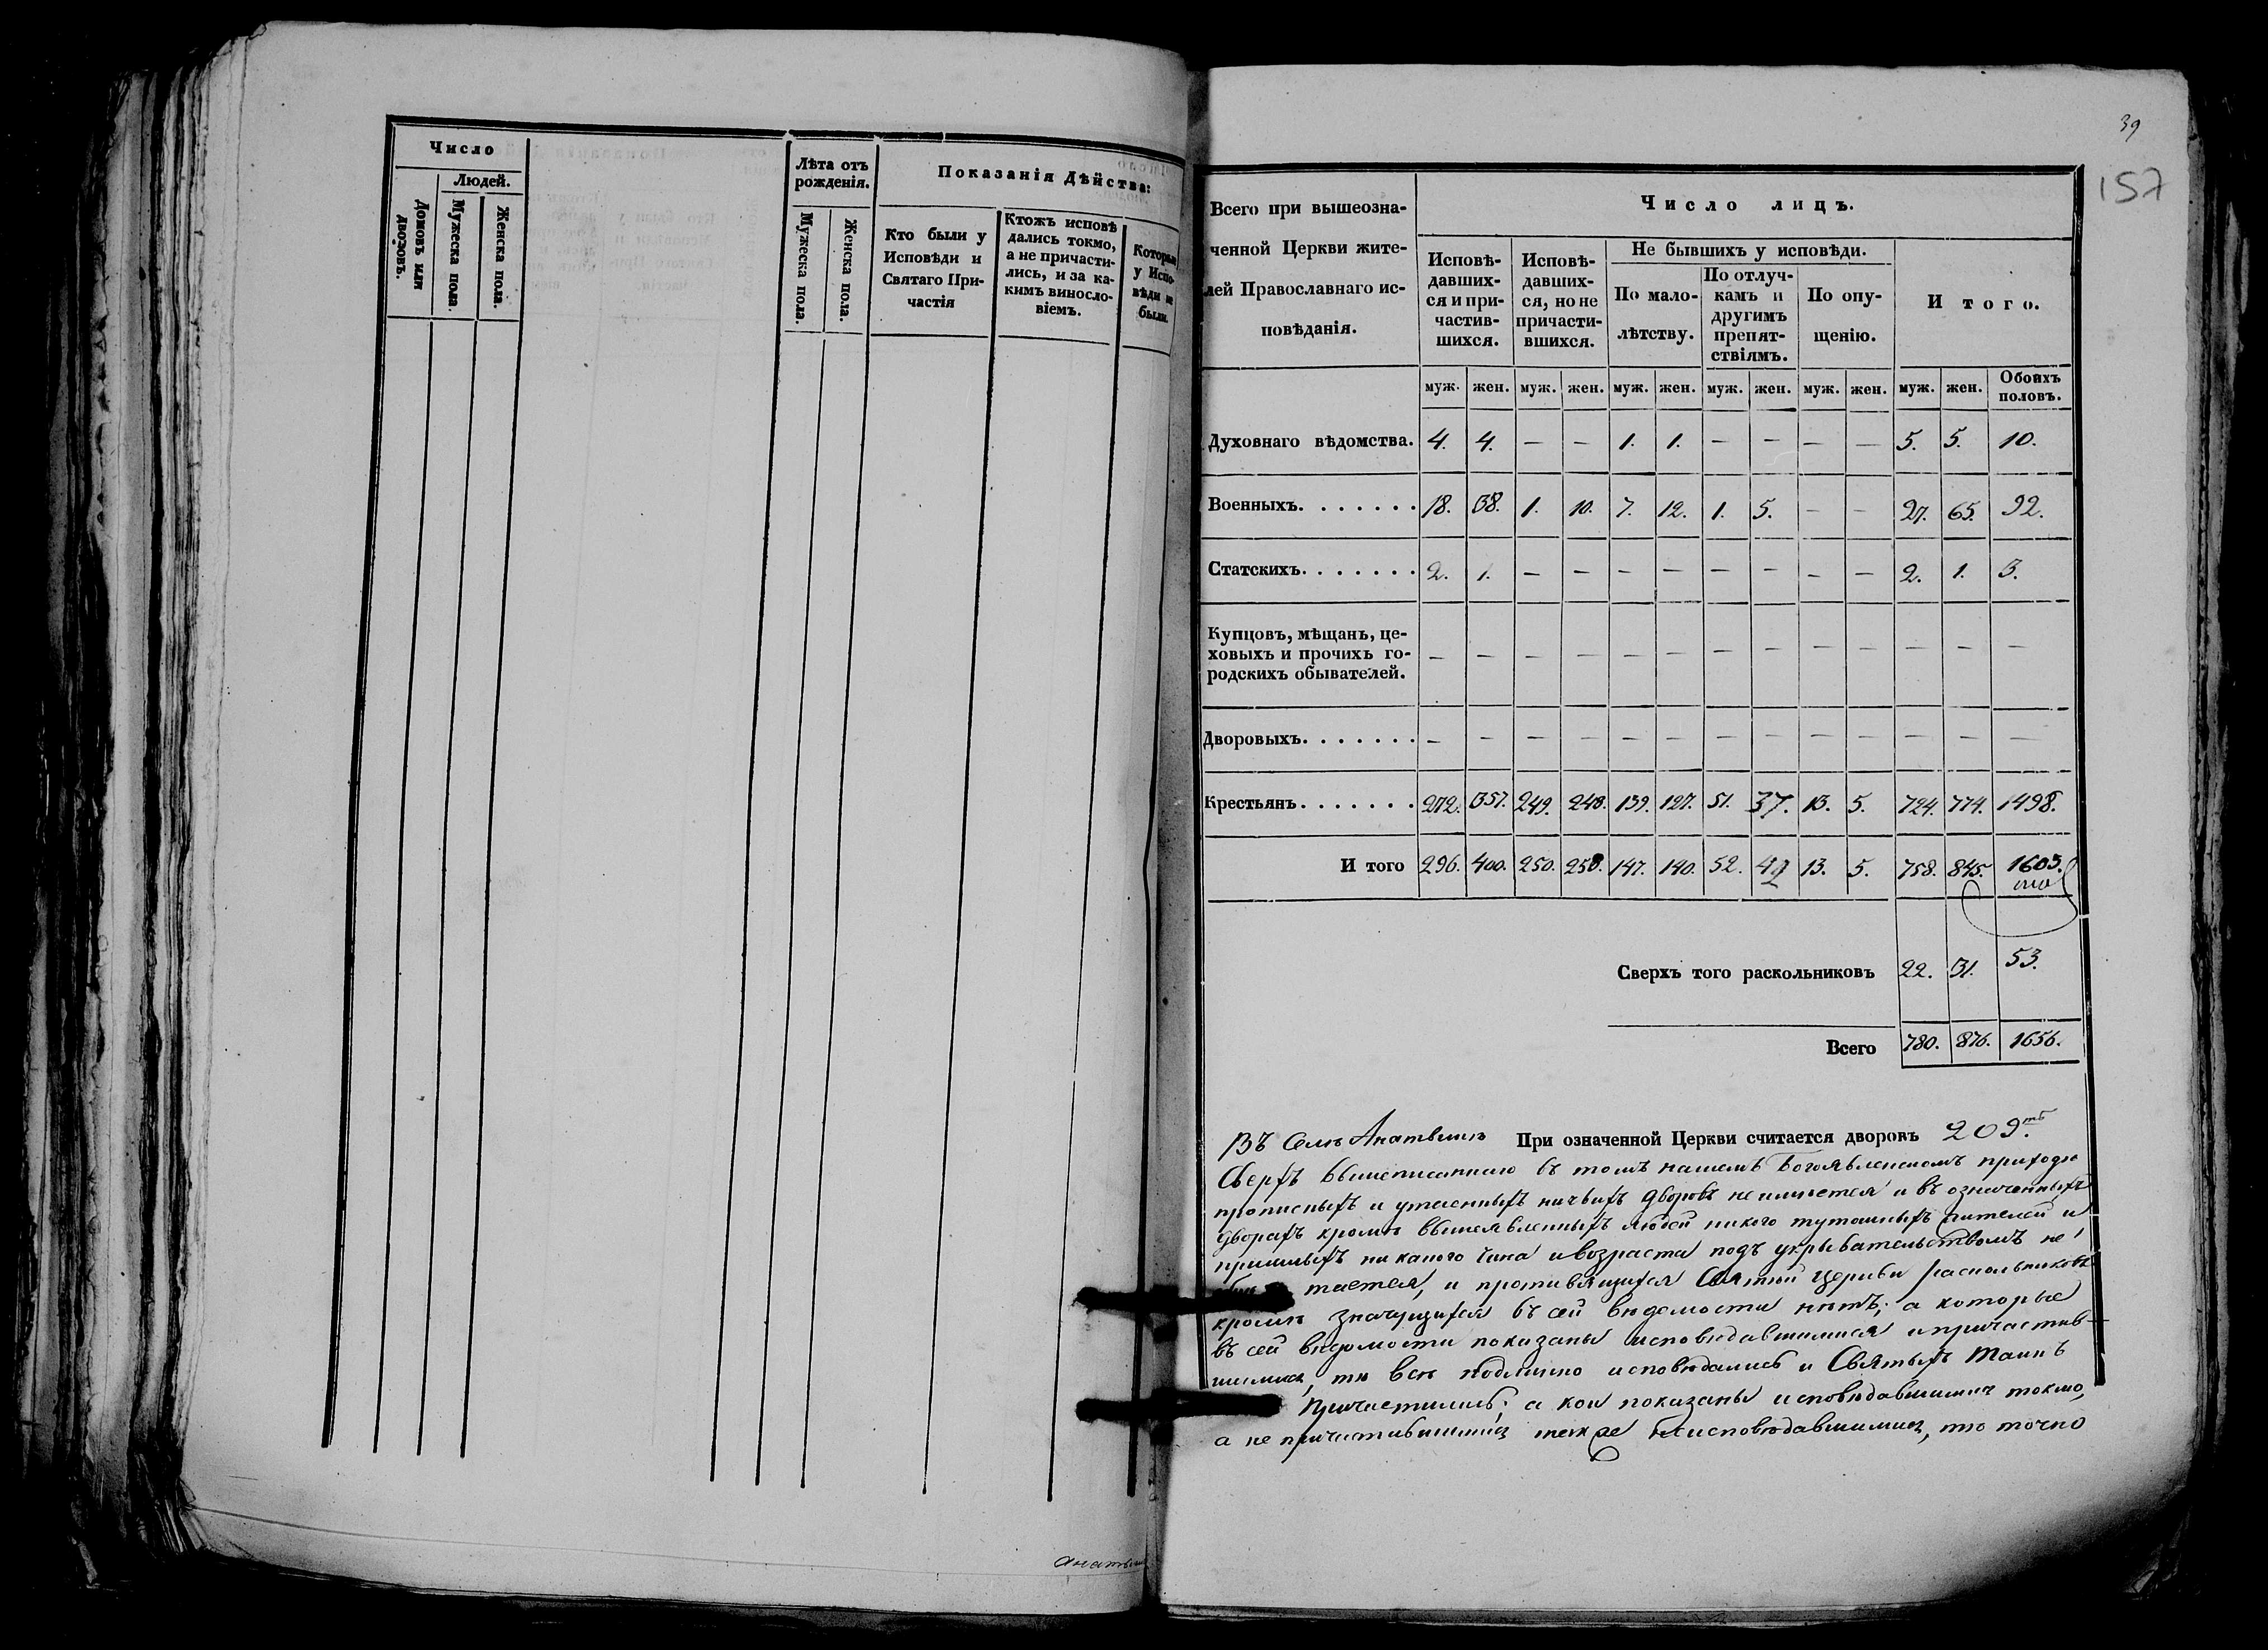 Число
Людей.
Домовъ или дворовъ.
Мужеска пола.
Женска пола.
Лѣта отъ
рожденія.
Мужеска пола.
Женска пола.
Показанія Дѣйства:
Кто были у
Исповѣди и
Святаго При-
частія
Ктожъ исповѣ
дались токмо,
а не причасти-
лись, и за ка-
кимъ виносло-
віемъ.
Которы
у Испо-
вѣди не
были.
39
157
Всего при вышеозна-
ченной Церкви жите-
лей Православнаго ис-
повѣданія.
Число лицъ.
Исповѣ-
давших-
ся и при-
частив-
шихся.
Исповѣ-
давших-
ся, но не
причасти-
вшихся.
Не бывшихъ у исповѣди.
По мало-
лѣтству.
По отлуч-
камъ и
другимъ
препят-
ствіямъ.
По опу-
щенію.
И того.
муж. жен. муж. жен. муж. жен. муж. жен. муж. жен. муж. жен. Обоихъ половъ.
Духовнаго вѣдомства. 4. 4. — — 1. 1. — — — — 5. 5. 10.
Военныхъ. . . . . . . 18. 38. 1. 10. 7. 12. 1. 5. — — 27. 65. 92.
Статскихъ. . . . . . . 2. 1. — — — — — — — — 2. 1. 3.
Купцовъ, мѣщанъ, це-
ховыхъ и прочихъ го-
родскихъ обывателей. — — — — — — — — — — — — —
Дворовыхъ. . . . . . . — — — — — — — — — — — — —
Крестьянъ. . . . . . . 272. 357. 249. 248. 139. 127. 51. 37. 13. 5. 724. 774. 1498.
И того 296. 400. 250. 258. 147. 140. 52. 42 13. 5. 758. 845. 1603.
Сверхъ того раскольниковъ 22. 31. 53.
Всего 780. 876. 1656.
Въ Селѣ При означенной Церкви считается дворовъ 209.ть
Сверхъ вышеписаннаго въ томъ нашемъ Богоявленскомъ приходѣ
прописныхъ и утаенныхъ ничьихъ дворовъ не имѣется и въ означенныхъ
дворахъ кромѣ вышеявленныхъ людей никого тутошныхъ жителей и
пришлыхъ никакого чина и возраста подъ укрывательствомъ не
тается, и противящихся Святой Церкви раскольниковъ
кромѣ значущихся въ сей вѣдомости нѣтъ; а которые
въ сей вѣдомости показаны исповѣдавшимися и причастив-
шимися, тѣ всѣ подлинно исповѣдались и Святыхъ Таинъ
Причастились; а кои показаны исповѣдавшимися токмо,
а не причастившимися также не исповѣдавшимися, тѣ точно